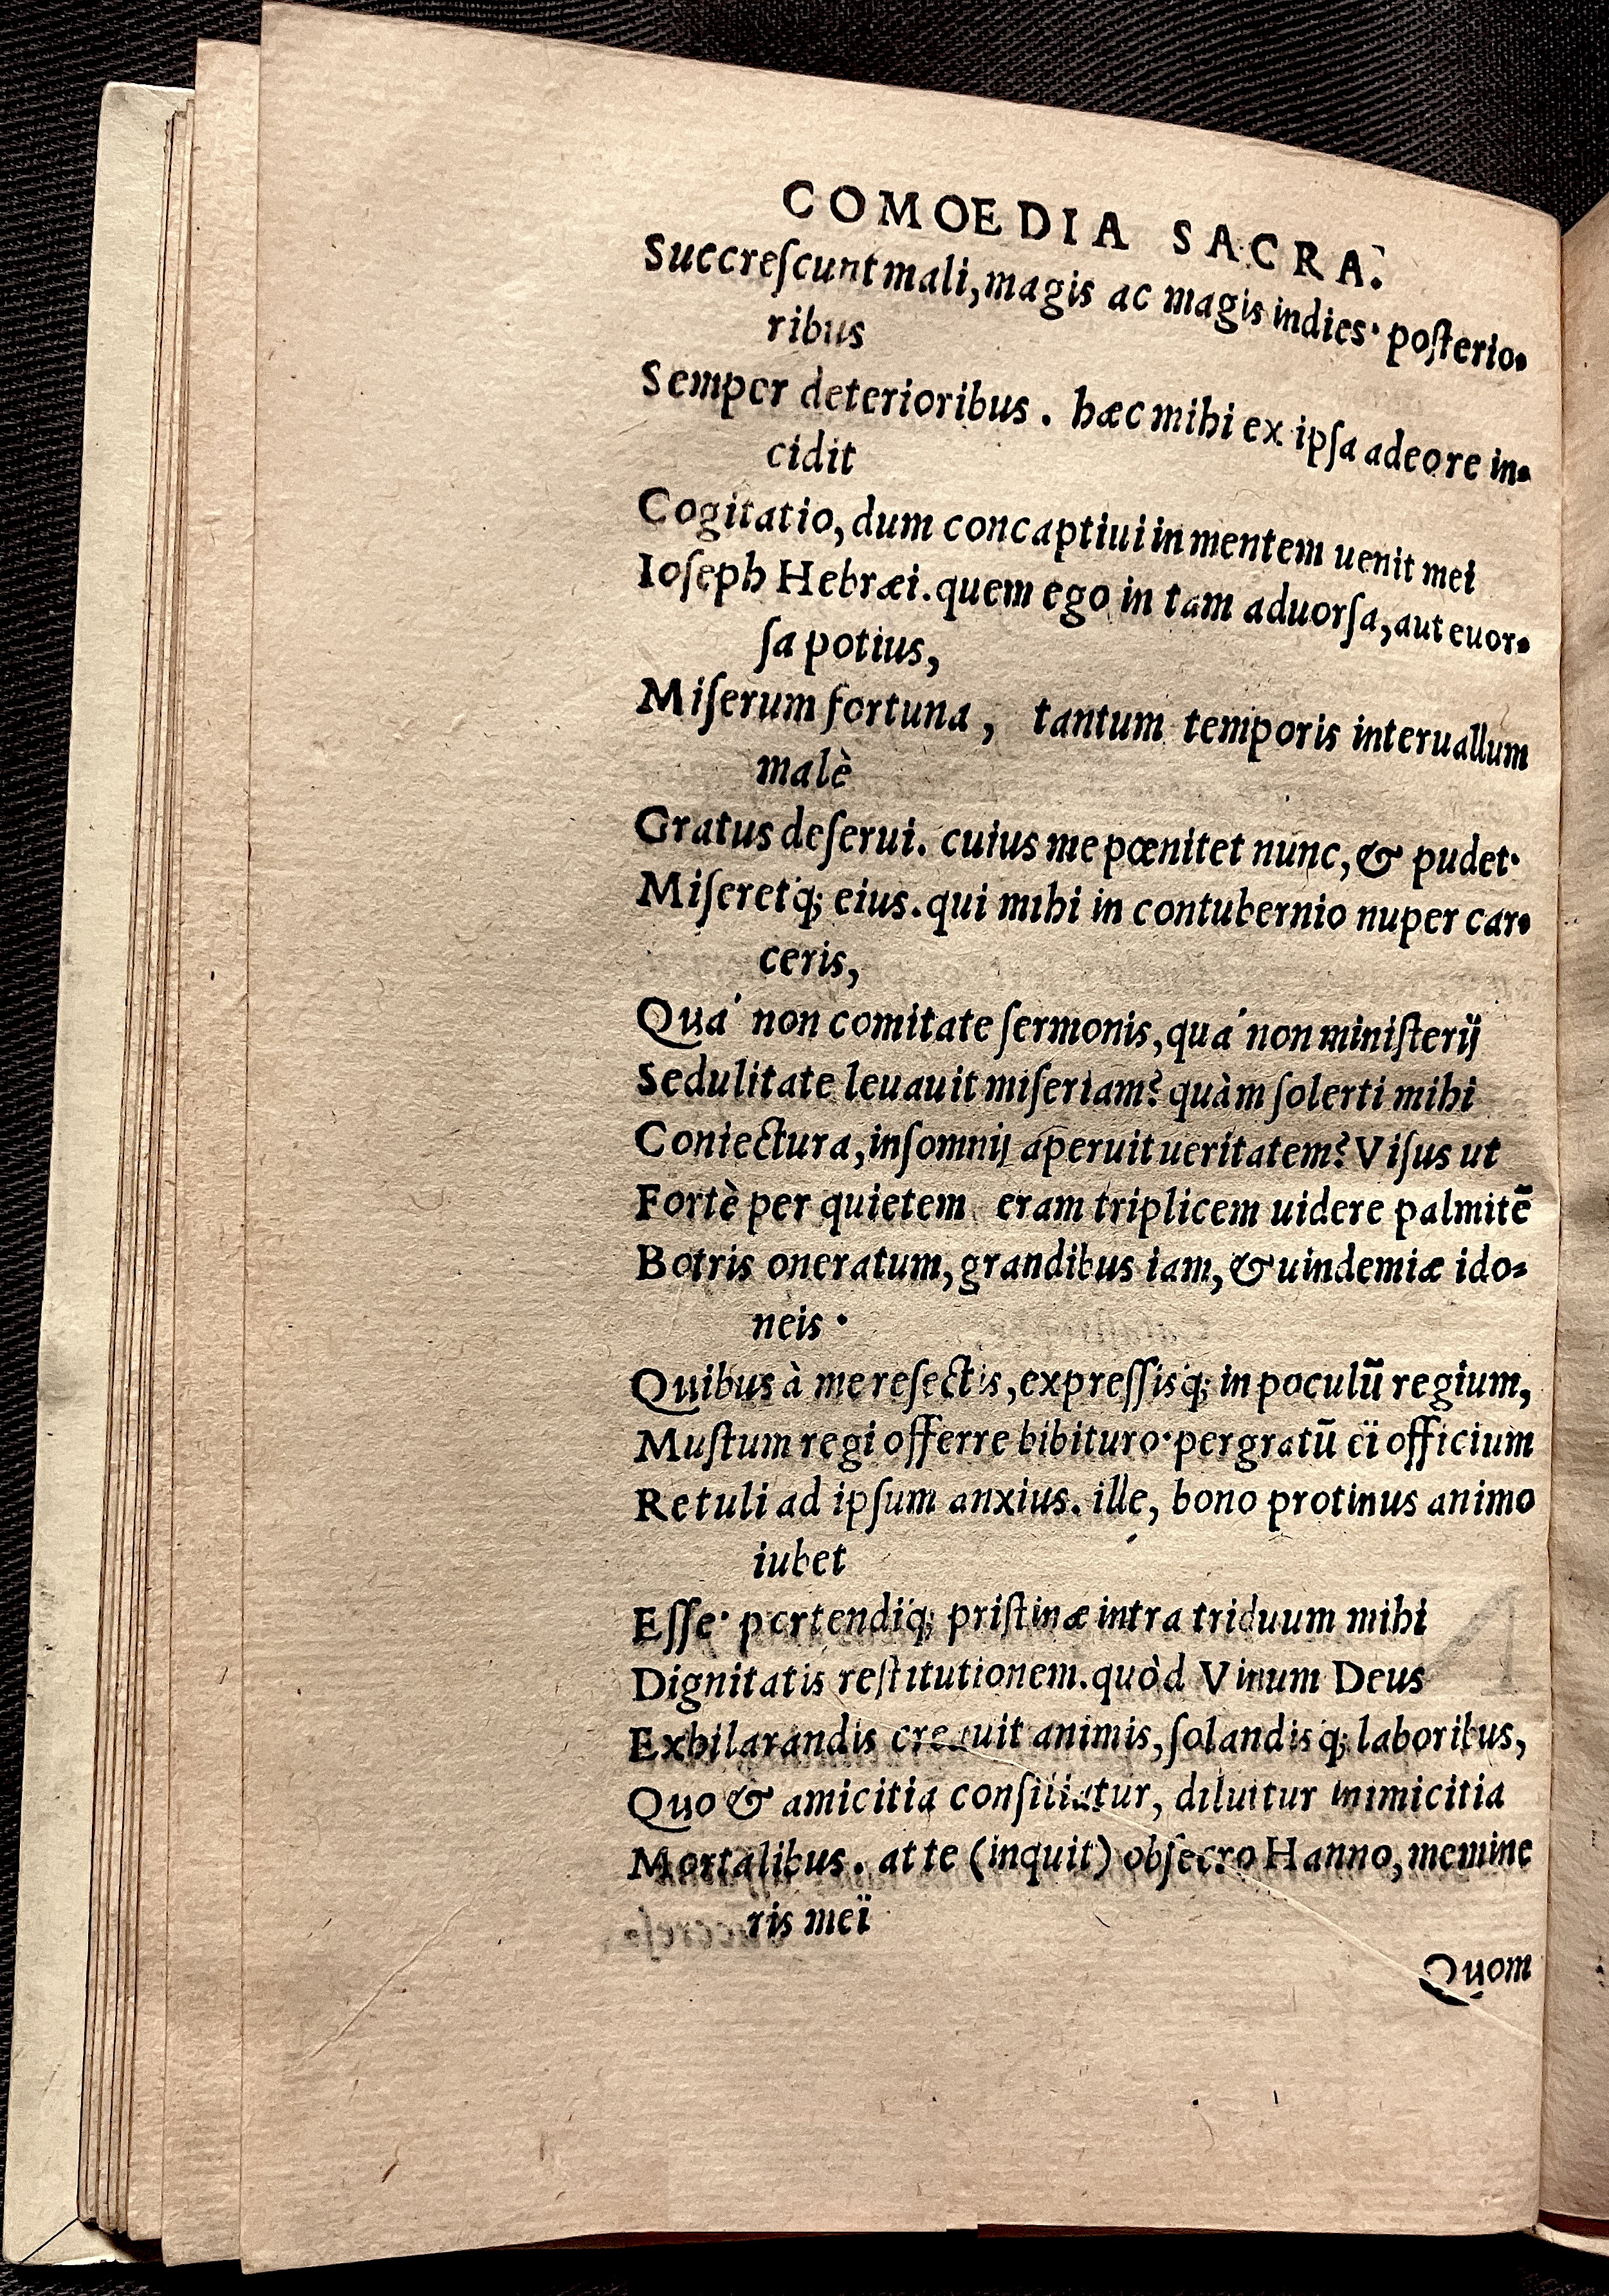 COMOEDIA SACRA.
Succreſcunt mali, magis ac magis indies· poſterio-
ribus
Semper deterioribus. hæc mihi ex ipſa adeo re in-
cidit
Cogitatio, dum concaptiui in mentem uenit mei
Ioſeph Hebræi. quem ego in tam aduorſa, aut euor-
ſa potius,
Miſerum fortuna, tantum temporis interuallum
malè
Gratus deſerui. cuius me pœnitet nunc, & pudet·
Miſeretq; eius. qui mihi in contubernio nuper car-
ceris,
Quá non comitate ſermonis, quá non miniſterij
Sedulitate leuauit miſeriam? quàm ſolerti mihi
Coniectura, inſomnij aperuit ueritatem? Viſus ut
Fortè per quietem eram triplicem uidere palmitē
Botris oneratum, grandibus iam, & uindemiæ ido-
neis·
Quibus à me reſectis, expreſſisq; in poculū regium,
Muſtum regi offerre bibituro· pergratū ëi officium
Retuli ad ipſum anxius. ille, bono protinus animo
iubet
Eſſe· portendiq; priſtinæ intra triduum mihi
Dignitatis reſtitutionem. quòd Vinum Deus
Exhilarandis creauit animis, ſolandisq; laboribus,
Quo & amicitia conſiliatur, diluitur inimicitia
Mortalibus. at te (inquit) obſecro Hanno, memine
ris meï
Quom